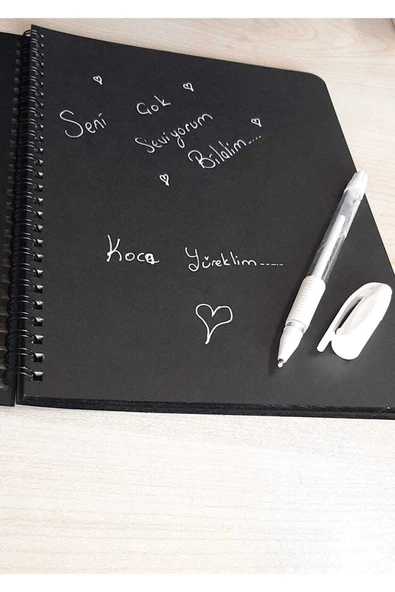 Seni Çok
Seviyorum
Bilalim....
Koca Yüreklim.....